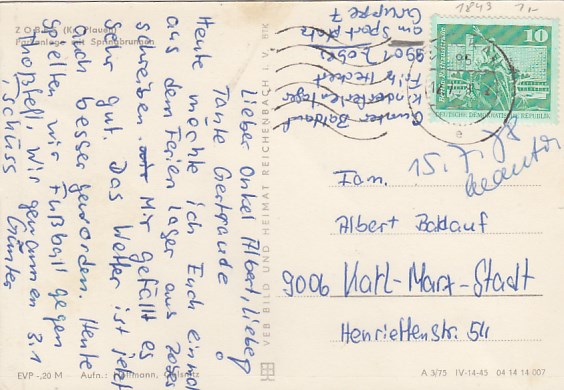 ZOBES (Kr. Plauen)
Parkanlage mit Springbrunnen
Lieber Onkel Albert, liebe
Tante Gertraude!
Heute möchte ich Euch einmal
aus dem Ferienlager aus Zobes
schreiben. Mir gefällt es
sehr gut. Das Wetter ist jetzt
auch besser geworden. Heute
spielten wir Fußball gegen
Wir gewannen 3:1
Tschüss Günter
EVP -,20 M Aufn.: Oelsnitz
VEB BILD UND HEIMAT REICHENBACH I. V. BTK
Günter Baldauf
Kinderferienlager
Fritz Heckert
9901 Zobes
am Sportplatz
Gruppe 7
1843 1,-
10
DEUTSCHE DEMOKRATISCHE REPUBLIK
15.7.78
Fam.
Albert Baldauf
9006 Karl-Marx-Stadt
Henriettenstr. 54
A 3/75 IV-14-45 04 14 14 007